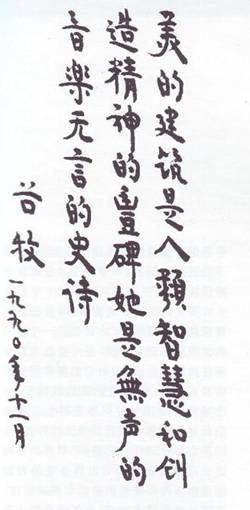 美的建筑是人類智慧和创
造精神的豊碑她是無声的
音樂无言的史诗
谷牧一九九〇年十一月